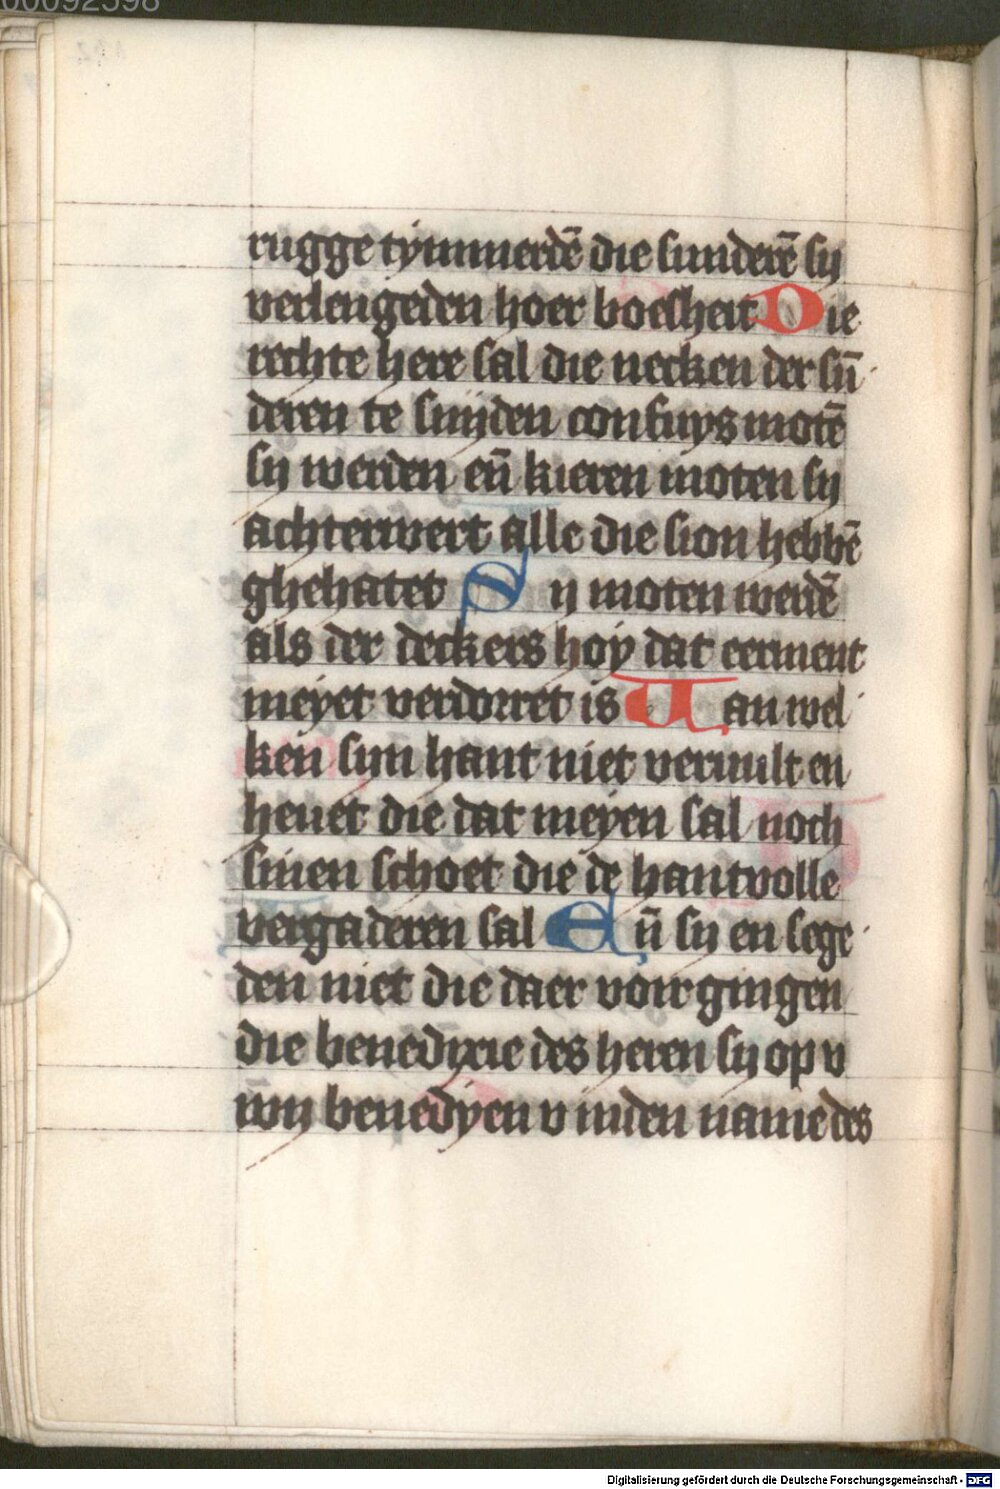 00092598
rugge tymmerdē die sunderē sy
verlengeden hoer boesheit Die
rechte here sal die necken der sū
deren te snyden confuys motē
sy werden eñ kieren moten sy
achterwert alle die sion hebbē
ghehatet Sy moten werdē
als der deckers hoy dat eerment
meyet verdorret is Uan wel
ken syn hant niet vervult en
hevet die dat meyen sal noch
sinen schoet die de hantvolle
vergaderen sal Eñ sy en sege
den niet die daer voir gingen
die benedyxie des heren sy op v
wy benedyen v in den name des
Digitalisierung gefördert durch die Deutsche Forschungsgemeinschaft - DFG